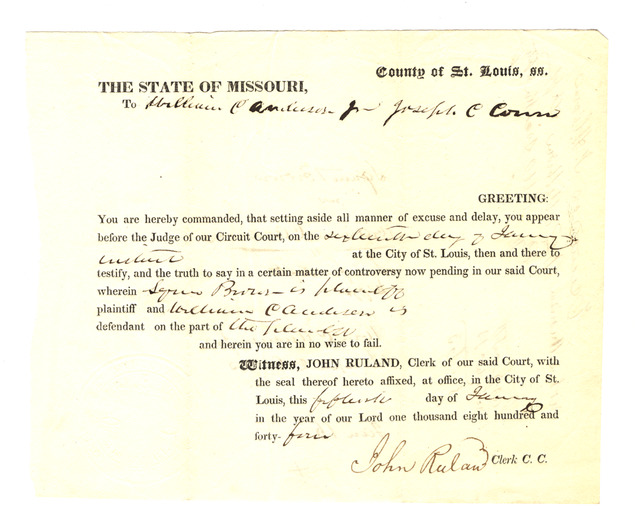 County of St. Louis, ss.
THE STATE OF MISSOURI,
To William C Anderson Jr Joseph C
GREETING:
You are hereby commanded, that setting aside all manner of excuse and delay, you appear
before the Judge of our Circuit Court, on the sixteenth day of
at the City of St. Louis, then and there to
testify, and the truth to say in a certain matter of controversy now pending in our said Court,
wherein Brown is plaintiff
plaintiff and William C Anderson is
defendant on the part of the
and herein you are in no wise to fail.
Witness, JOHN RULAND, Clerk of our said Court, with
the seal thereof hereto affixed, at office, in the City of St.
Louis, this day of
in the year of our Lord one thousand eight hundred and
forty-four
John Ruland Clerk C. C.